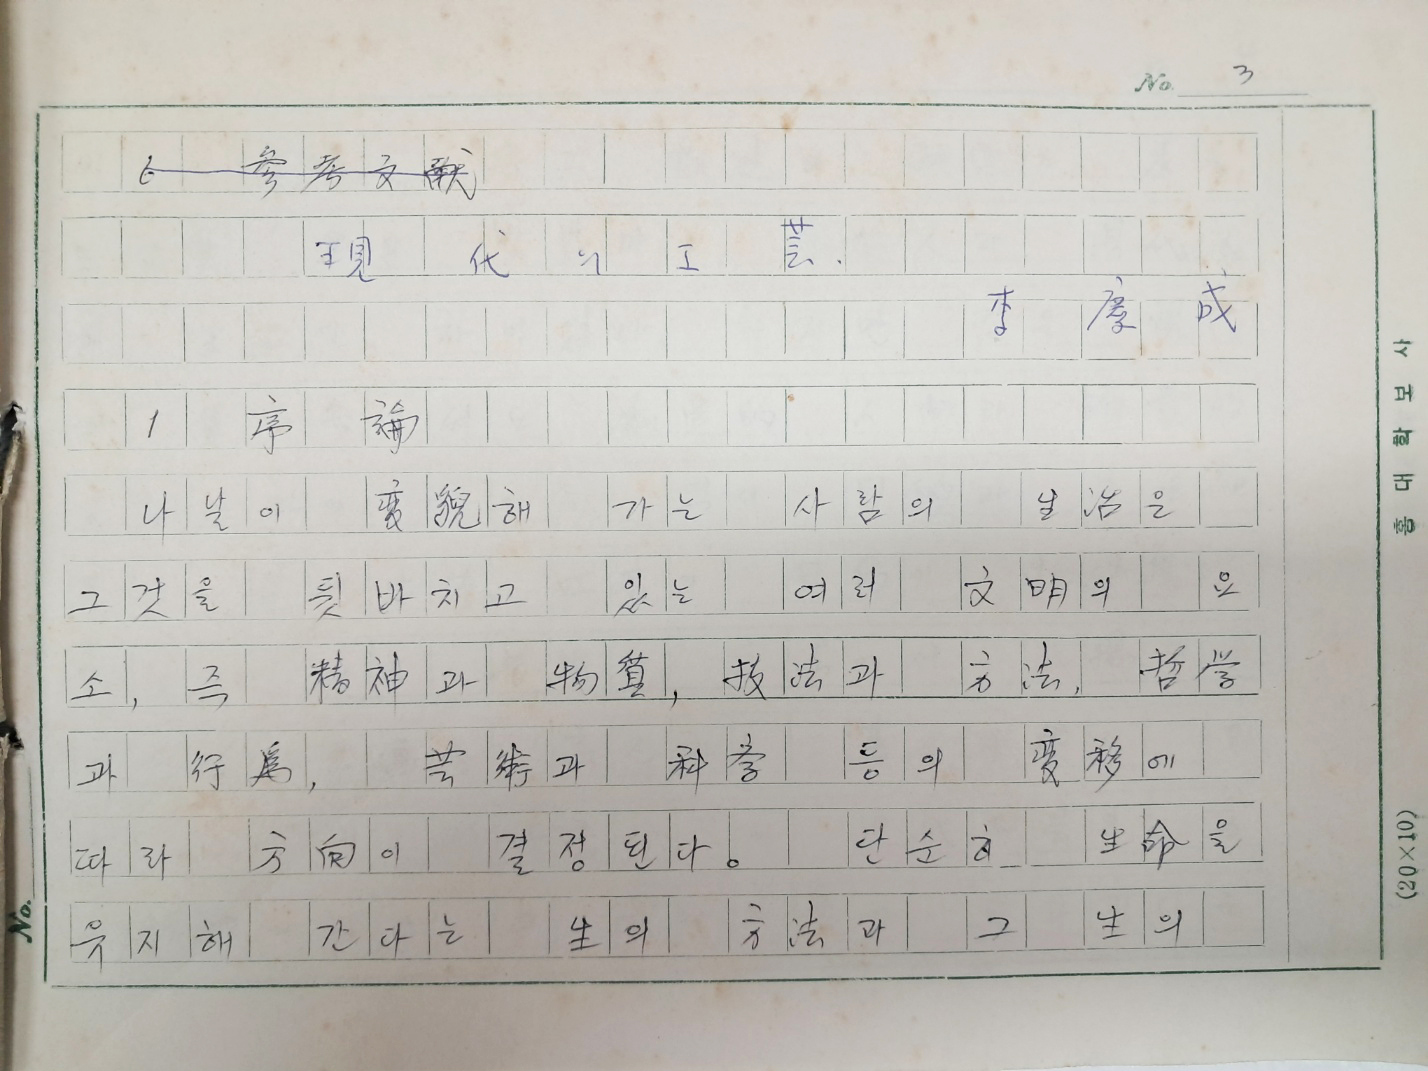 No. 3
6 参考文献
現代의 工芸.
李慶成
1 序論
나날이 変貌해 가는 사람의 生活은
그것을 뒷바치고 있는 여러 文明의 요
소, 즉 精神과 物質, 技法과 方法, 哲学
과 行為, 芸術과 科学 등의 変移에
따라 方向이 결정된다。 단순히 生命을
유지해 간다는 生의 方法과 그 生의
No.
(20×10)